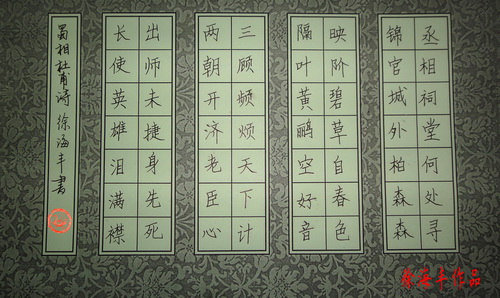 丞相祠堂何处寻
锦宫城外柏森森
映阶碧草自春色
隔叶黄鹂空好音
三顾频烦天下计
两朝开济老臣心
出师未捷身先死
长使英雄泪满襟
蜀相杜甫诗 徐海丰書
徐海丰作品